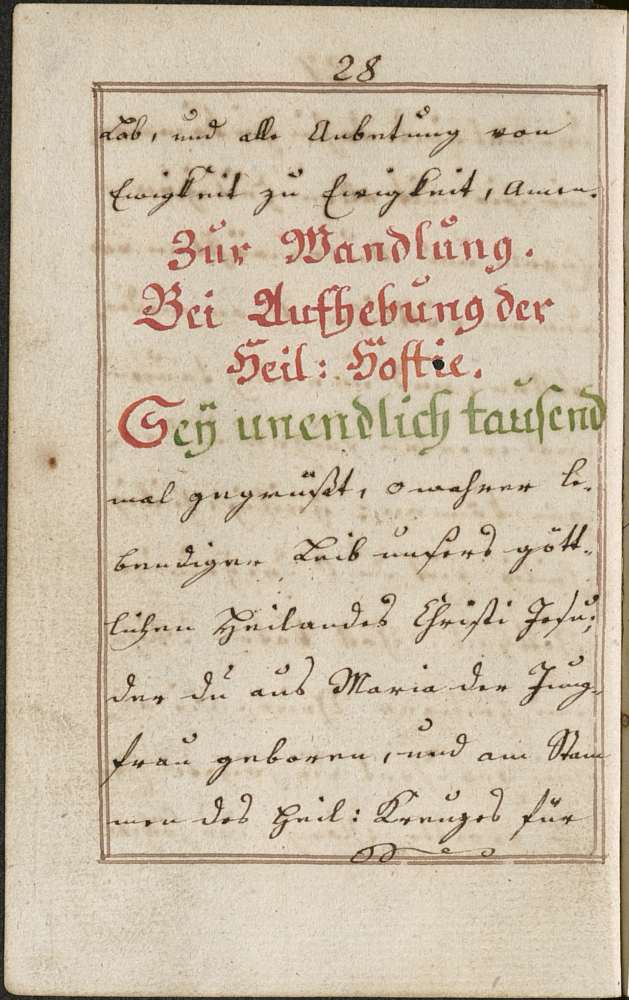 28
Lob, und alle Anbetung von
Ewigkeit zu Ewigkeit, Amen.
Zur Wandlung.
Bei Aufhebung der
Heil: Hostie.
Seÿ unendlich tausend
mal gegrüßt, o wahrer le-
bendiger Leib unsers gött-
lichen Heilandes Christi Jesu;
der du aus Maria der Jung-
frau geboren, und am Stam
men des heil: Kreuzes für